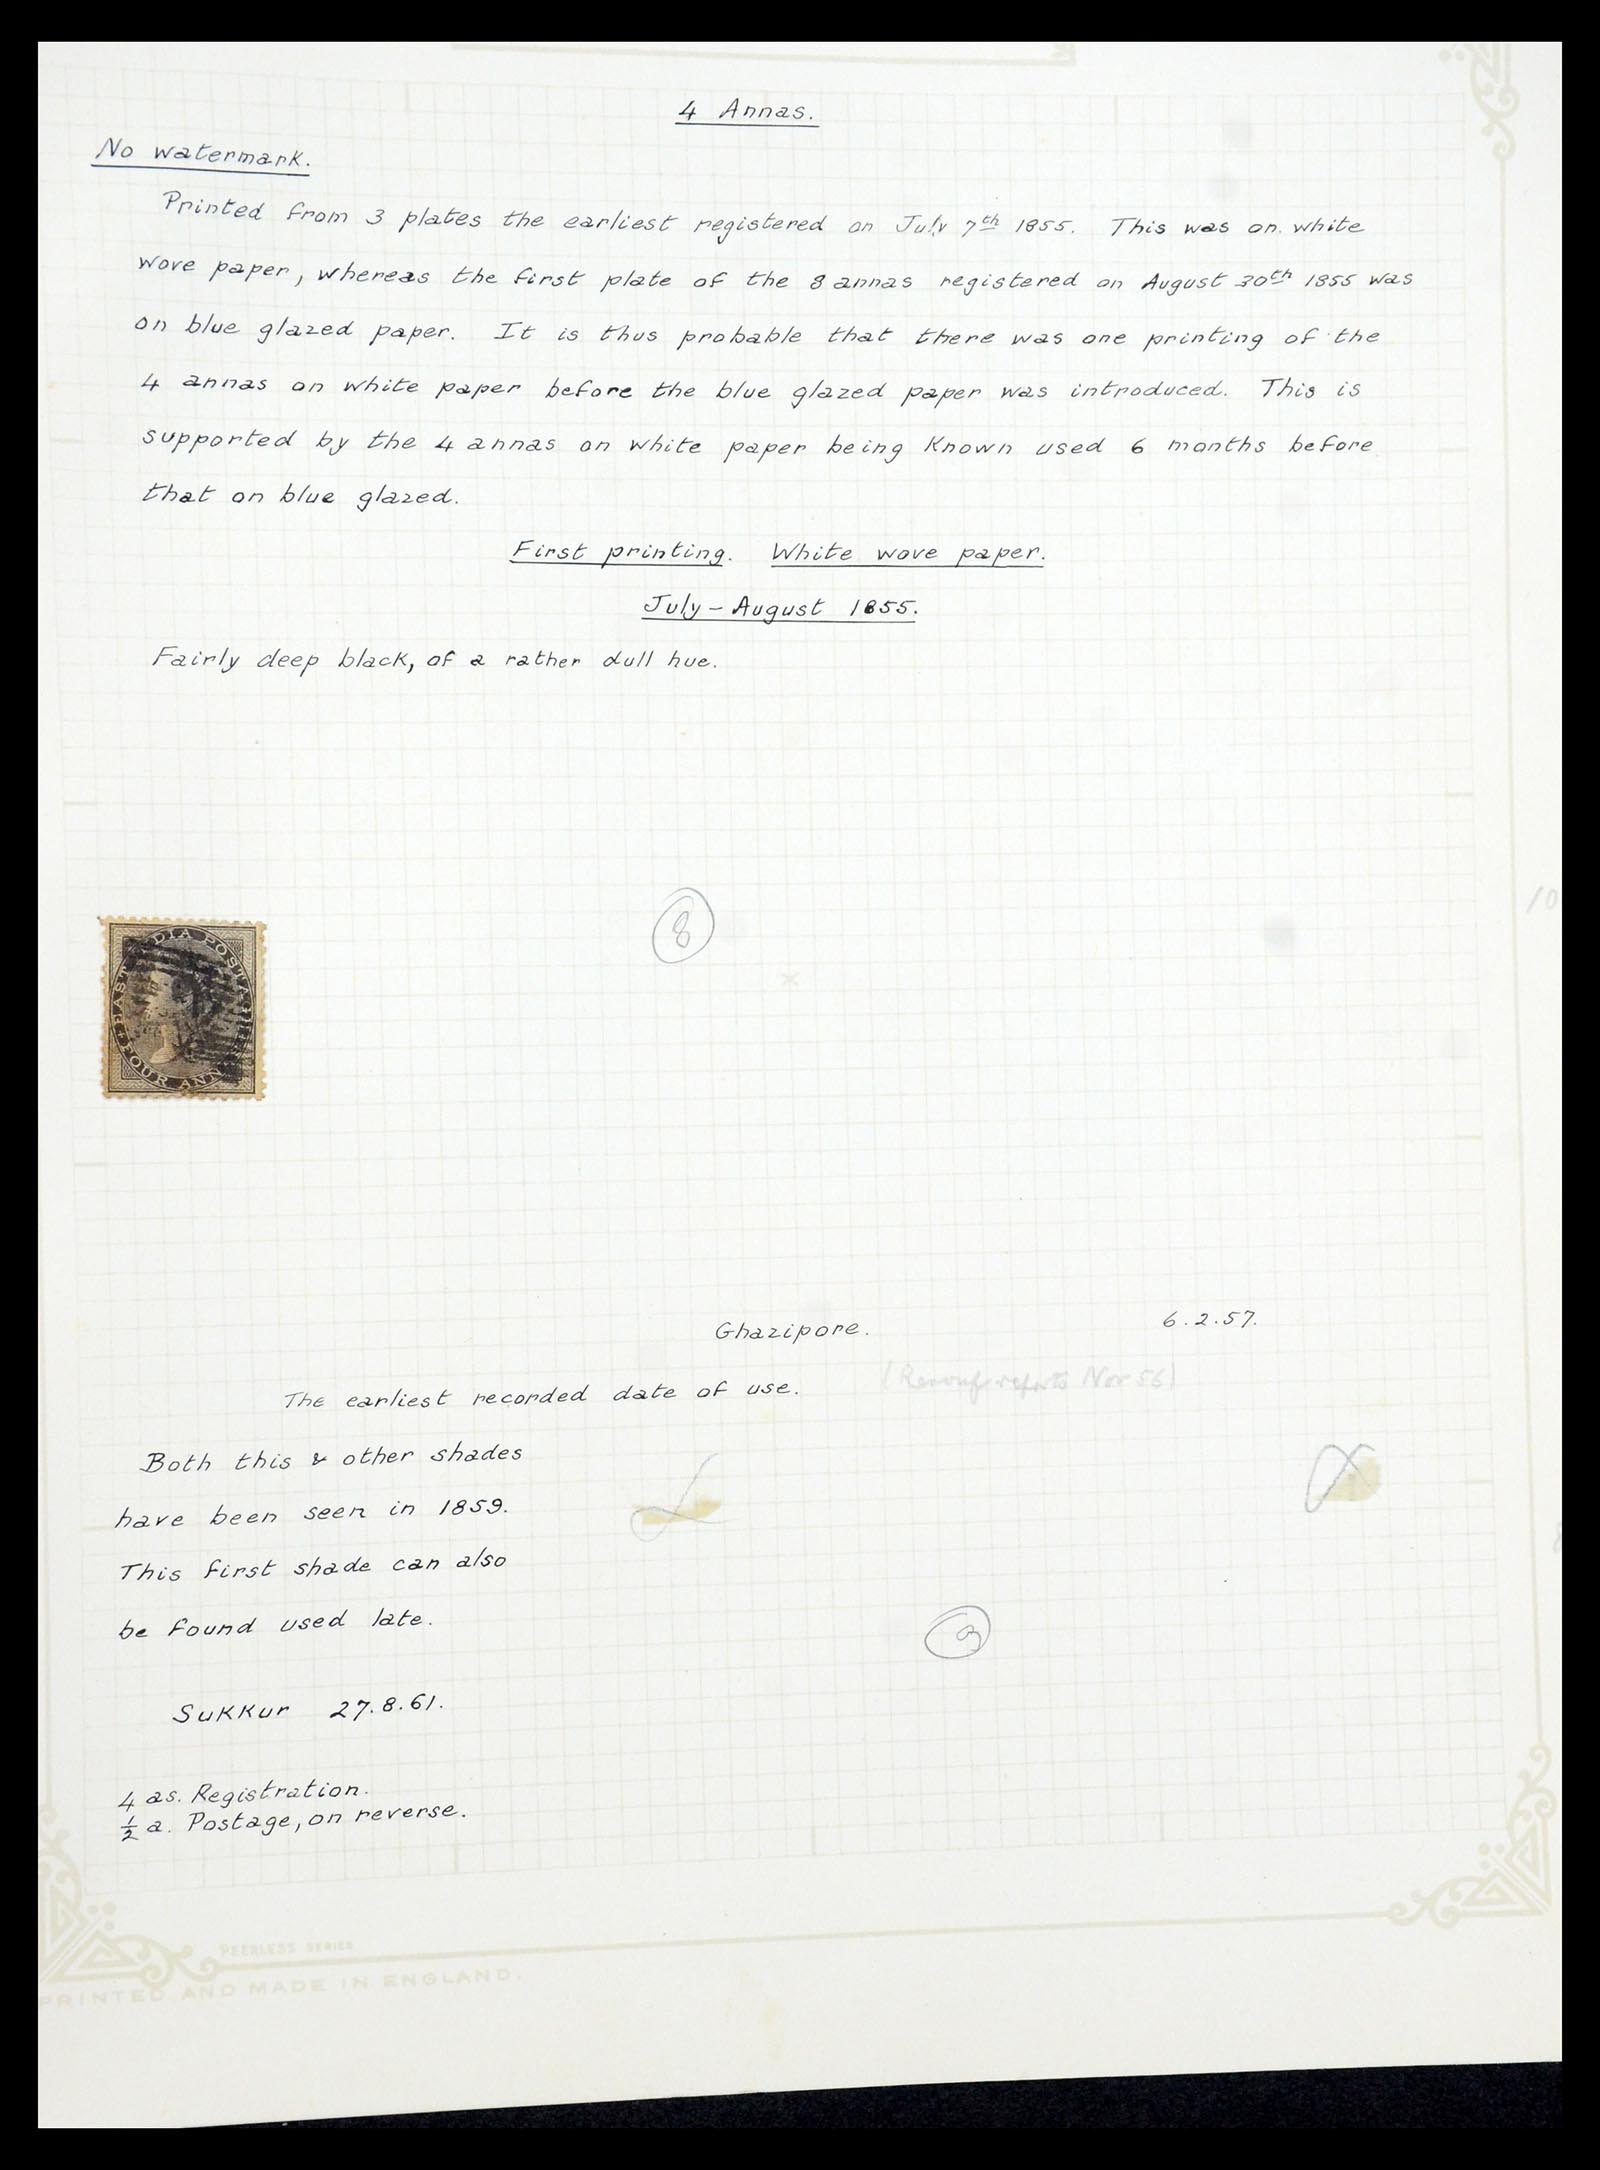 4 Annas.
No watermark.
Printed from 3 plates the earliest registered on July 7th 1855. This was on white
wove paper, whereas the first plate of the 8 annas registered on August 30th 1855 was
on blue glazed paper. It is thus probable that there was one printing of the
4 annas on white paper before the blue glazed paper was introduced. This is
supported by the 4 annas on white paper being known used 6 months before
that on blue glazed.
First printing. White wove paper.
July - August 1855.
Fairly deep black, of a rather dull hue.
10
8
EAST INDIA POSTAGE
FOUR ANN
Ghazipore. 6.2.57.
The earliest recorded date of use. ( reports Nov 56)
Both this & other shades
have been seen in 1859.
This first shade can also
be found used late.
3
Sukkur 27.8.61.
4 as. Registration.
½ a. Postage, on reverse.
PEERLESS SERIES
PRINTED AND MADE IN ENGLAND.